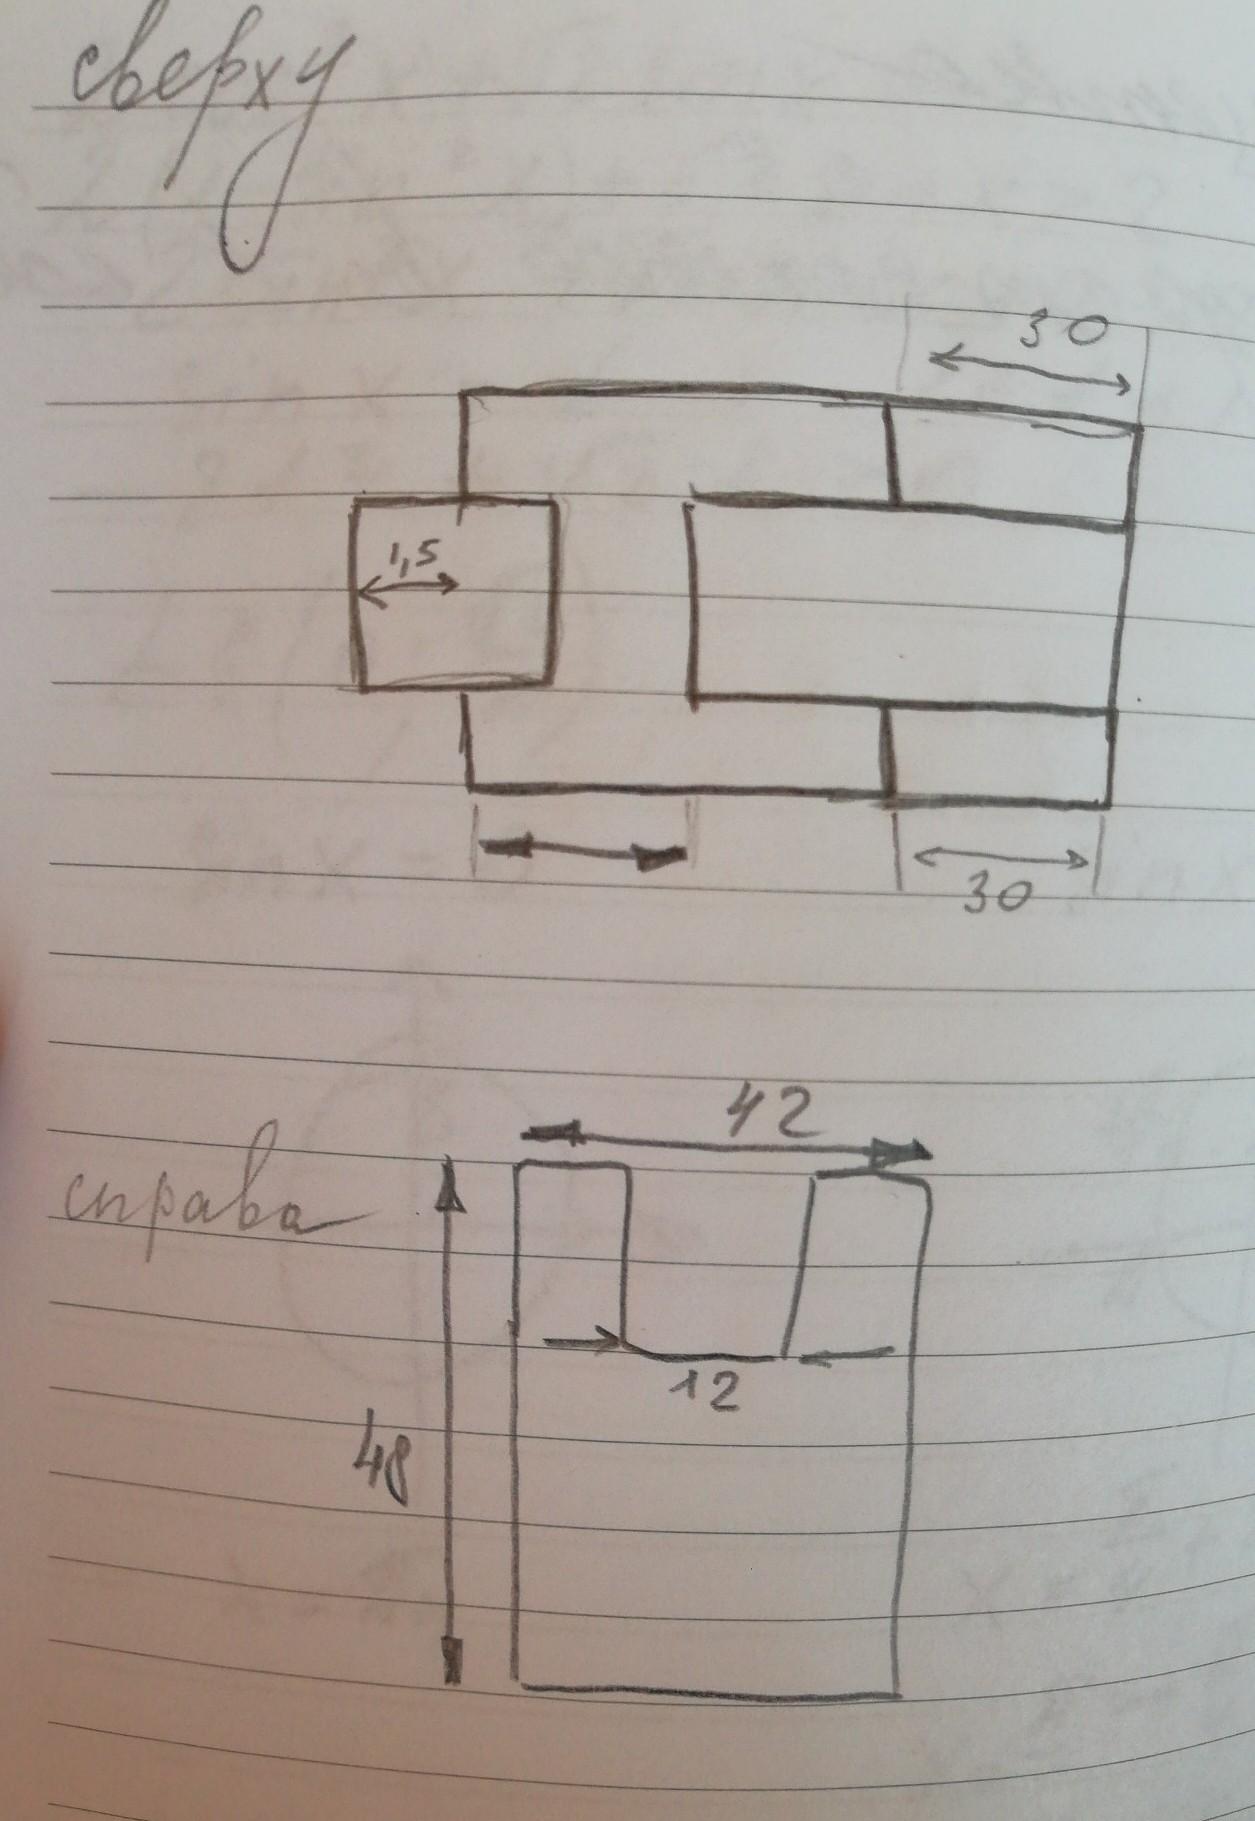 сверху
30
1,5
30
42
справа
12
48